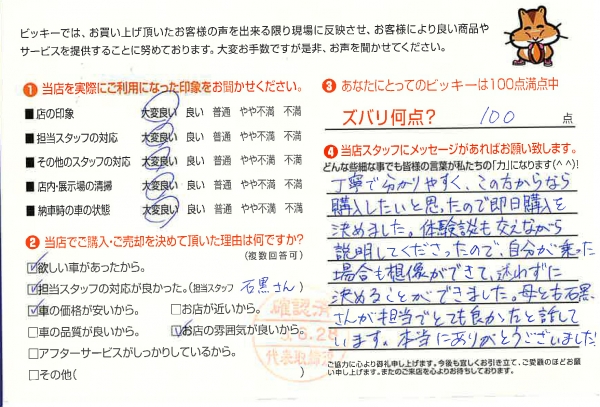 ビッキーでは、お買い上げ頂いたお客様の声を出来る限り現場に反映させ、お客様により良い商品や
サービスを提供することに努めております。大変お手数ですが是非、お声を聞かせてください。
❶ 当店を実際にご利用になった印象をお聞かせください。
■店の印象 大変良い 良い 普通 やや不満 不満
■担当スタッフの対応 大変良い 良い 普通 やや不満 不満
■その他のスタッフの対応 大変良い 良い 普通 やや不満 不満
■店内・展示場の清掃 大変良い 良い 普通 やや不満 不満
■納車時の車の状態 大変良い 良い 普通 やや不満 不満
❷ 当店でご購入・ご売却を決めて頂いた理由は何ですか?
(複数回答可)
☑欲しい車があったから。
☑担当スタッフの対応が良かった。(担当スタッフ 石黒さん )
☑車の価格が安いから。 □お店が近いから。
□車の品質が良いから。 ☑お店の雰囲気が良いから。
□アフターサービスがしっかりしているから。
□その他( )
確認済
代表取締役
❸ あなたにとってのビッキーは100点満点中
ズバリ何点? 100 点
❹ 当店スタッフにメッセージがあればお願い致します。
どんな些細な事でも皆様の言葉が私たちの「力」になります(^^)!
丁寧で分かりやすく、この方からなら
購入したいと思ったので即日購入を
決めました。体験談も交えながら
説明してくださったので、自分が乗った
場合も想像ができて、迷わずに
決めることができました。母とも石黒
さんが担当でとても良かったと話して
います。本当にありがとうございました!
ご協力に心より御礼申し上げます。今後も宜しくお引き立て、ご愛顧のほどお願
い申し上げます。またのご来店を心よりお待ちしております。